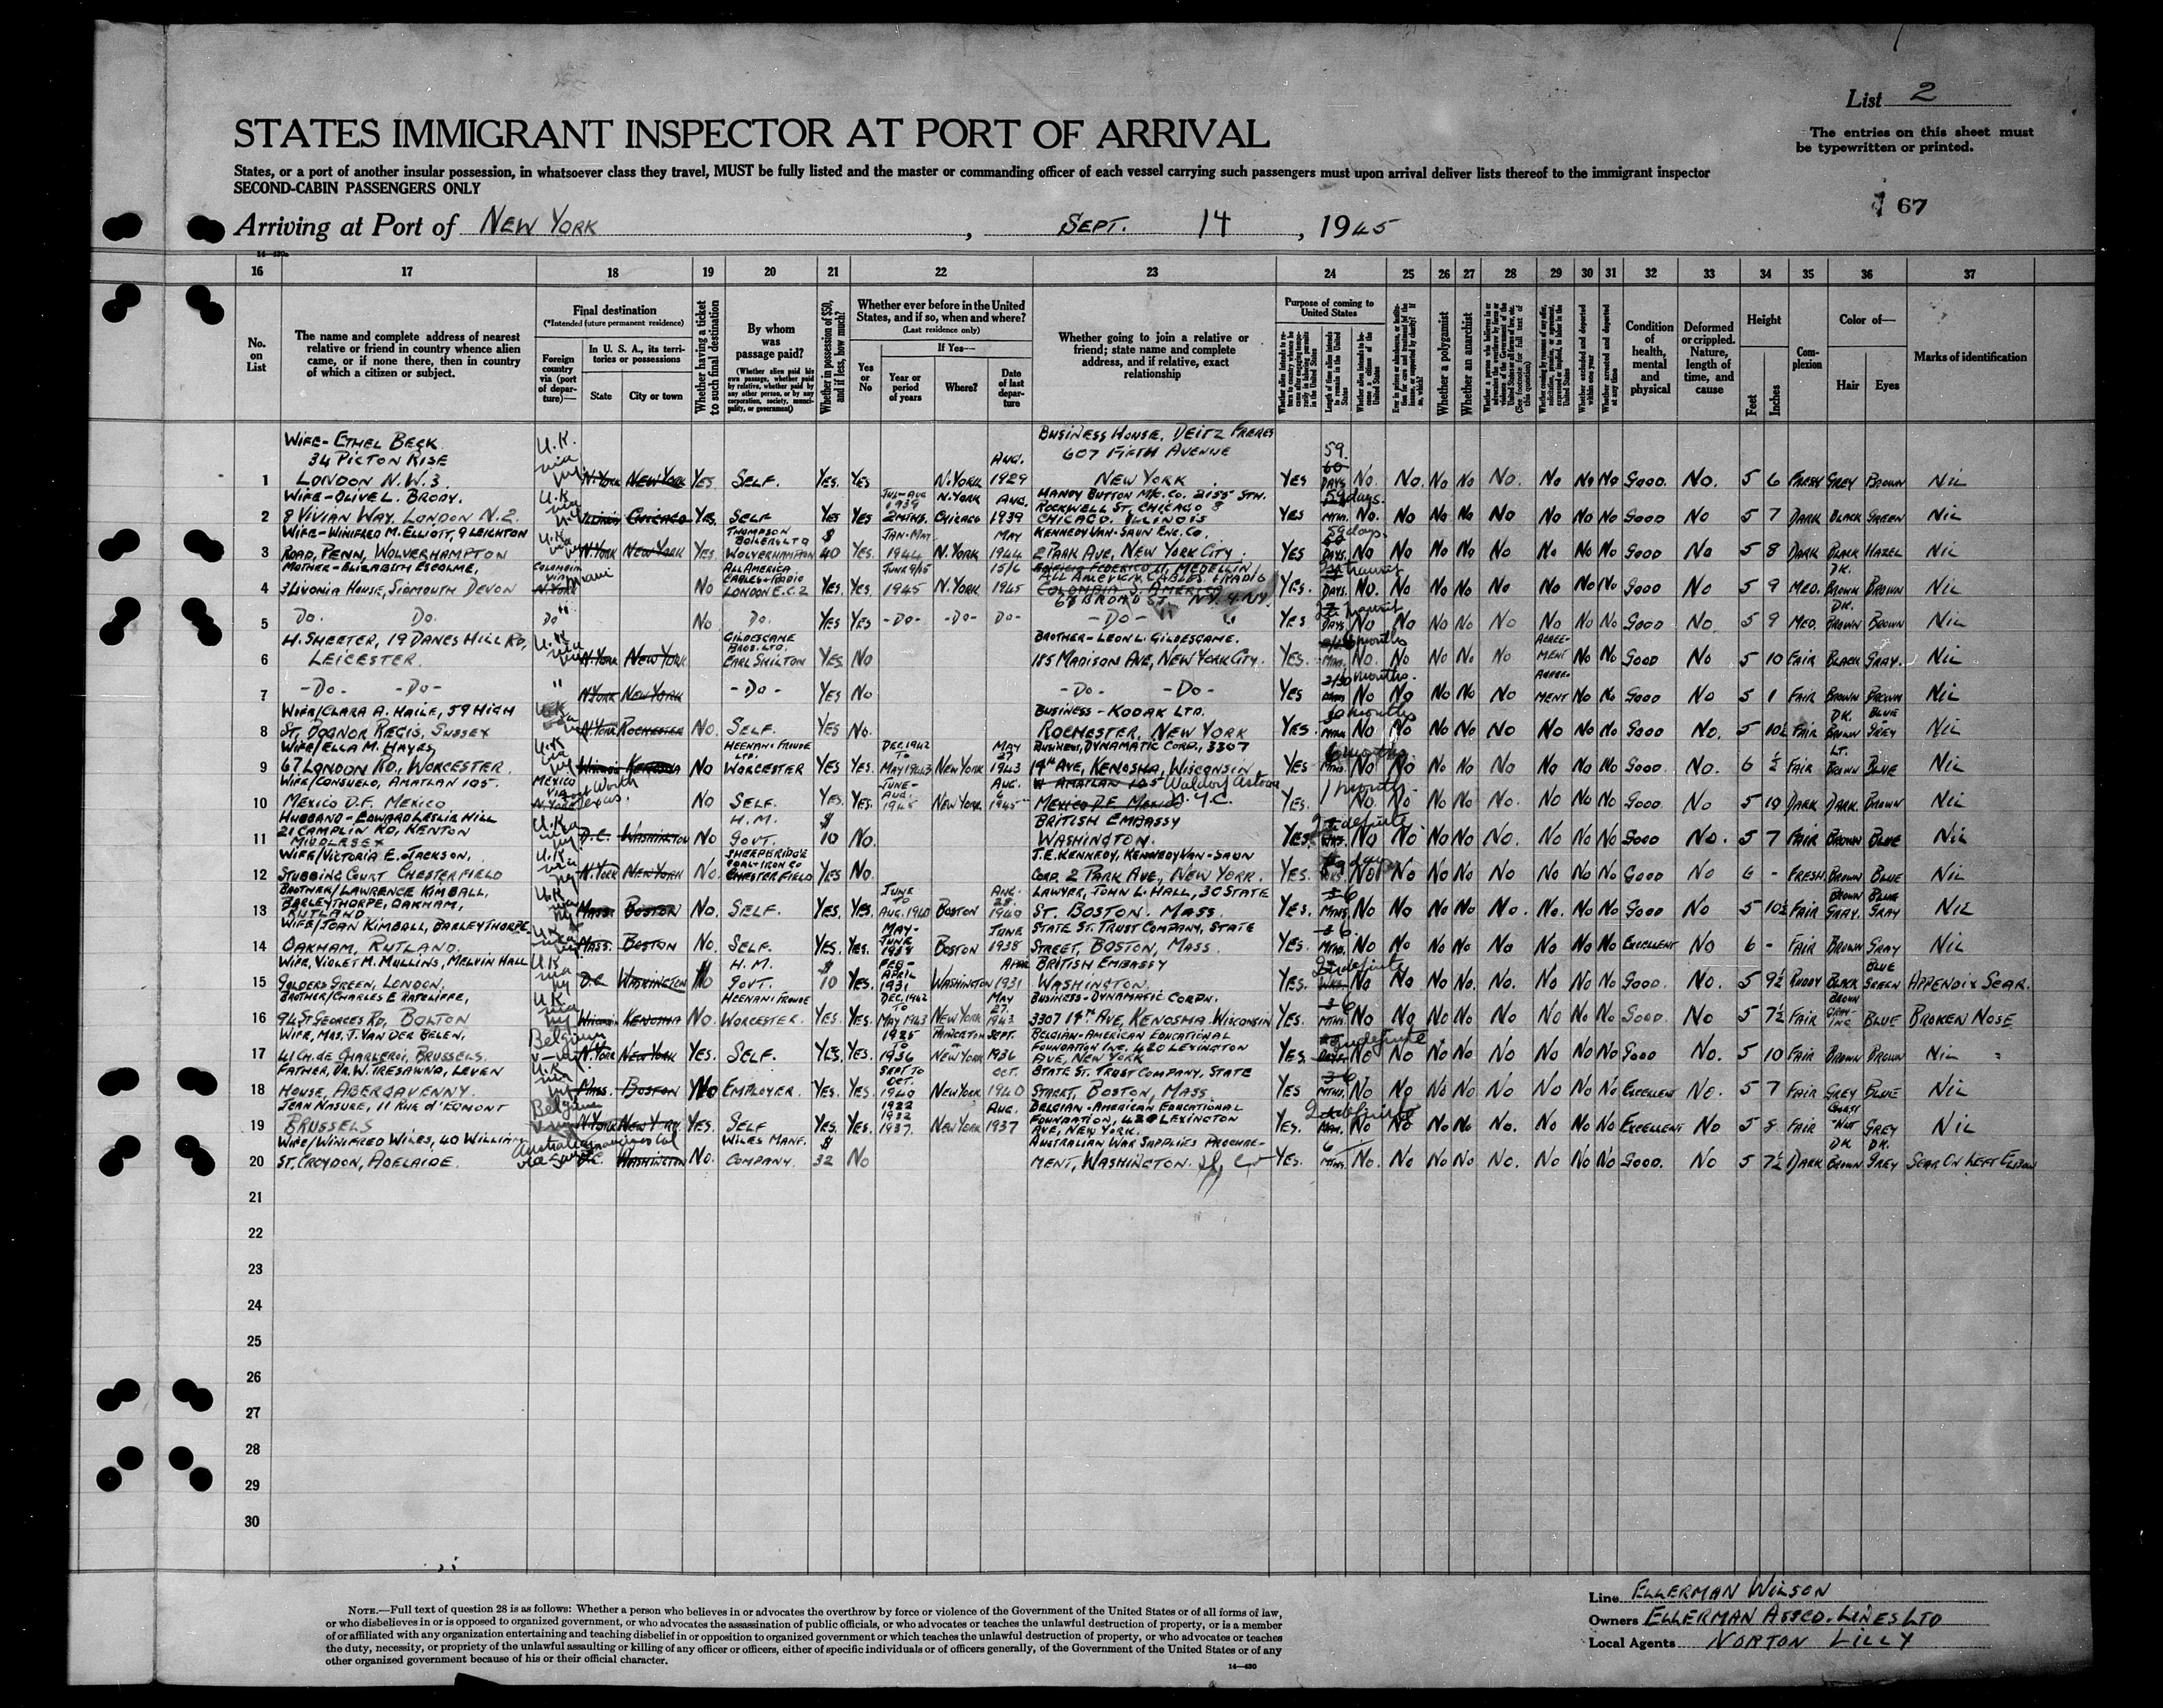 List 2
STATES IMMIGRANT INSPECTOR AT PORT OF ARRIVAL
The entries on this sheet must
be typewritten or printed.
States, or a port of another insular possession, in whatsoever class they travel, MUST be fully listed and the master or commanding officer of each vessel carrying such passengers must upon arrival deliver lists thereof to the immigrant inspector
SECOND-CABIN PASSENGERS ONLY
67
Arriving at Port of NEW YORK, SEPT. 14, 1945
16 17 18 19 20 21 22 23 24 25 26 27 28 29 30 31 32 33 34 35 36 37
No. on List
The name and complete address of nearest relative or friend in country whence alien came, or if none there, then in country of which a citizen or subject.
Final destination
(*Intended future permanent residence)
Foreign country via (port of departure)—
In U. S. A., its territories or possessions
State City or town
Whether having a ticket to such final destination
By whom was passage paid?
(Whether alien paid his own passage, whether paid by relative, whether paid by any other person, or by any corporation, society, municipality, or government)
Whether in possession of $50, and if less, how much?
Whether ever before in the United States, and if so, when and where?
(Last residence only)
Yes or No
If Yes—
Year or period of years
Where?
Date of last departure
Whether going to join a relative or friend; state name and complete address, and if relative, exact relationship
Purpose of coming to United States
Length of time alien intends to remain in the United States
Whether a polygamist
Whether an anarchist
Whether excluded and deported within one year
Whether arrested and deported at any time
Condition of health, mental and physical
Deformed or crippled. Nature, length of time, and cause
Height
Feet Inches
Complexion
Color of—
Hair Eyes
Marks of identification
WIFE- ETHEL BECK U.K. BUSINESS HOUSE, DEITZ FRERES
34 PICTON RISE via AUG. 607 FIFTH AVENUE 59
1 LONDON N.W.3. N.YORK NEW YORK YES. SELF. YES. YES N.YORK 1929 NEW YORK YES 60 DAYS NO. NO. NO NO NO. NO NO NO GOOD. NO. 5 6 FRESH GREY BROWN NIL
WIFE-OLIVE L. BRODY. U.K. JUL-AUG 1939 N.YORK AUG. HANDY BUTTON MFC. CO. 2155 STH. ROCKWELL ST. CHICAGO 8 59 days.
2 8 VIVIAN WAY, LONDON N.2. ILLINOIS CHICAGO YES. SELF YES YES 2 MTHS. CHICAGO 1939 CHICAGO. ILLINOIS YES MTHS. NO. NO NO NO NO NO NO NO GOOD NO 5 7 DARK BLACK GREEN NIL
WIFE-WINIFRED M. ELLIOTT, 9 LEIGHTON U.K. THOMPSON BOILERS LTD $ JAN-MAY. MAY KENNEDY VAN-SAUN ENG. CO. 59 days.
3 ROAD, PENN, WOLVERHAMPTON N.YORK NEW YORK YES. WOLVERHAMPTON 40 YES. 1944 N.YORK 1944 2 PARK AVE, NEW YORK CITY. YES 60 DAYS. NO NO NO NO NO NO NO NO GOOD NO 5 8 DARK BLACK HAZEL NIL
MOTHER-ELIZABETH ESCOLME, COLOMBIA VIA Miami ALL AMERICA CABLES & RADIO JUNE 9/15 15/6 EDIFICIO FEDERICO II, MEDELLIN ALL AMERICA CABLES & RADIO In transit DK.
4 3 LIVONIA HOUSE, SIDMOUTH DEVON N.YORK NO LONDON E.C.2 YES. YES 1945 N.YORK 1945 COLOMBIA S. AMERICA 67 BROAD ST. N.Y. 4. N.Y. YES. DAYS. NO. NO NO NO NO NO NO NO GOOD NO 5 9 MED. BROWN BROWN NIL
DO. DO. DO " In transit DK.
5 NO DO. YES YES -DO- -DO- DO- -DO- YES DAYS NO NO NO NO NO NO NO NO GOOD NO. 5 9 MED. BROWN BROWN NIL
H. SHEETER, 19 DANES HILL RD, U.K. GILDESGAME BROS. LTD. BROTHER-LEON L. GILDESGAME. months AGREE-
6 LEICESTER. N.YORK NEW YORK EARL SHILTON YES NO 185 MADISON AVE, NEW YORK CITY. YES. MTHS. NO. NO NO NO NO MENT NO NO GOOD NO 5 10 FAIR BLACK GRAY. NIL
-DO- -DO- " months. AGREE-
7 N.YORK NEW YORK -DO- YES NO -DO- -DO- YES NO NO NO NO NO MENT NO NO GOOD NO 5 1 FAIR BROWN BROWN NIL
WIFE/CLARA A. HAILE, 59 HIGH BUSINESS - KODAK LTD. months DK. BLUE
8 ST, BOGNOR REGIS, SUSSEX N.YORK ROCHESTER NO. SELF. YES NO. ROCHESTER, NEW YORK YES. MTHS. NO NO NO NO NO NO NO NO GOOD NO. 5 10½ FAIR BROWN GREY NIL
WIFE/ELLA M. HAYES, U.K. HEENAN & FROUDE LTD. DEC. 1942 TO MAY 27 BUSINESS, DYNAMATIC CORP., 3307 6 months LT.
9 67 LONDON RD., WORCESTER. KENOSHA NO WORCESTER YES YES. MAY 1943 NEW YORK 1943 19TH AVE, KENOSHA, WISCONSIN YES MTHS. NO NO NO NO NO NO NO NO GOOD. NO. 6 ½ FAIR BROWN BLUE NIL
WIFE/CONSUELO, AMATLAN 105. MEXICO VIA Fort Worth JUNE-AUG. AUG. 6 AMATLAN 105 Waldorf Astoria 1 month
10 MEXICO D.F. MEXICO N.YORK Texas. NO SELF. YES. YES. 1945 NEW YORK 1945 MEXICO D.F. MEXICO N.Y.C. YES. NO. NO. NO NO NO. NO NO NO GOOD. NO 5 10 DARK DARK. BROWN NIL
HUSBAND-EDWARD LESLIE HILL 21 CAMPLIN RD, KENTON U.K. H.M. $ BRITISH EMBASSY Indefinite
11 MIDDLESEX D.C. WASHINGTON NO GOVT. 10 NO. WASHINGTON. YES NO NO NO NO NO. NO NO NO GOOD NO. 5 7 FAIR BROWN BLUE NIL
WIFE/VICTORIA E. JACKSON, U.K. SHEEPBRIDGE COAL & IRON CO J.E. KENNEDY, KENNEDY VAN-SAUN
12 STUBBING COURT CHESTERFIELD N.YORK NEW YORK NO. CHESTERFIELD YES NO. CORP. 2 PARK AVE, NEW YORK. YES. NO NO NO NO NO NO NO NO GOOD NO 6 - FRESH. BROWN BLUE NIL
BROTHER/LAWRENCE KIMBALL, BARLEYTHORPE, OAKHAM, U.K. JUNE TO AUG. 28. LAWYER, JOHN L. HALL, 30 STATE 6 BROWN BLUE
13 RUTLAND MASS. BOSTON NO. SELF. YES. YES. AUG. 1940 BOSTON 1940 ST. BOSTON. MASS. YES. MTHS. NO NO NO NO NO. NO. NO NO GOOD NO 5 10½ FAIR GRAY. GRAY NIL
WIFE/JOAN KIMBALL, BARLEYTHORPE, U.K. MAY-JUNE JUNE STATE ST. TRUST COMPANY, STATE 6.
14 OAKHAM, RUTLAND. MASS. BOSTON NO. SELF. YES. YES. 1938 BOSTON 1938 STREET, BOSTON, MASS. YES. MTHS. NO NO NO NO NO NO NO NO EXCELLENT NO 6 - FAIR BROWN GRAY NIL
WIFE, VIOLET M. MULLINS, MELVIN HALL U.K. H.M. $ FEB-APRIL APRIL BRITISH EMBASSY Indefinite BLUE
15 GOLDERS GREEN, LONDON. D.C. WASHINGTON NO GOVT. 10 YES. 1931 WASHINGTON 1931 WASHINGTON. YES. NO NO. NO NO NO. NO. NO NO GOOD. NO. 5 9½ RUDDY BLACK GREEN APPENDIX SCAR.
BROTHER/CHARLES E RATCLIFFE, U.K. HEENAN & FROUDE DEC. 1942 TO MAY 27. BUSINESS-DYNAMATIC CORPN. 6 BROWN
16 94 ST GEORGES RD, BOLTON KENOSHA NO. WORCESTER. YES. YES. MAY 1943 NEW YORK 1943. 3307 19TH AVE, KENOSHA. WISCONSIN YES. MTHS. NO NO NO NO NO NO NO NO GOOD. NO 5 7½ FAIR GRAY-ING BLUE BROKEN NOSE
WIFE, MRS. J. VAN DER BELEN, Belgium 1925 TO PRINCETON SEPT. BELGIAN-AMERICAN EDUCATIONAL FOUNDATION INC. 420 LEXINGTON Indefinite
17 41 CH. DE CHARLEROI, BRUSSELS. N.YORK NEW YORK YES. SELF. YES. YES. 1936 NEW YORK 1936 AVE, NEW YORK YES. DAYS. NO NO NO NO NO NO NO NO GOOD NO. 5 10 FAIR BROWN BROWN NIL
FATHER, DR. W. TRESAWNA, LEVEN U.K. SEPT TO OCT. OCT. STATE ST. TRUST COMPANY, STATE 6
18 HOUSE, ABERGAVENNY. MASS. BOSTON NO EMPLOYER. YES. YES. 1940 NEW YORK 1940 STREET, BOSTON, MASS. YES MTHS. NO NO NO NO NO NO NO NO EXCELLENT NO. 5 7 FAIR GREY BLUE NIL
JEAN NASURE, 11 RUE d'EGMONT Belgium 1922 1932 AUG. BELGIAN-AMERICAN EDUCATIONAL FOUNDATION, 420 LEXINGTON Indefinite CHEST
19 BRUSSELS N.YORK NEW YORK. YES. SELF YES. YES. 1937. NEW YORK 1937 AVE, NEW YORK. YES. NO NO NO NO NO. NO NO NO EXCELLENT NO 5 8 FAIR -NUT GREY NIL
WIFE/WINIFRED WILES, 40 WILLIAM Australia WILES MANF. $ AUSTRALIAN WAR SUPPLIES PROCURE- 6 DK. DK.
20 ST. CROYDON, ADELAIDE. D.C. WASHINGTON NO. COMPANY. 32 NO MENT, WASHINGTON. YES. MTHS. NO. NO NO NO NO. NO NO NO GOOD. NO 5 7½ DARK BROWN GREY SCAR ON LEFT ELBOW
21
22
23
24
25
26
27
28
29
30
NOTE.—Full text of question 28 is as follows: Whether a person who believes in or advocates the overthrow by force or violence of the Government of the United States or of all forms of law,
or who disbelieves in or is opposed to organized government, or who advocates the assassination of public officials, or who advocates or teaches the unlawful destruction of property, or is a member
of or affiliated with any organization entertaining and teaching disbelief in or opposition to organized government or which teaches the unlawful destruction of property, or who advocates or teaches
the duty, necessity, or propriety of the unlawful assaulting or killing of any officer or officers, either of specific individuals or of officers generally, of the Government of the United States or of any
other organized government because of his or their official character.
14—430
Line ELLERMAN WILSON
Owners ELLERMAN ASSCD. LINES LTD
Local Agents NORTON LILLY